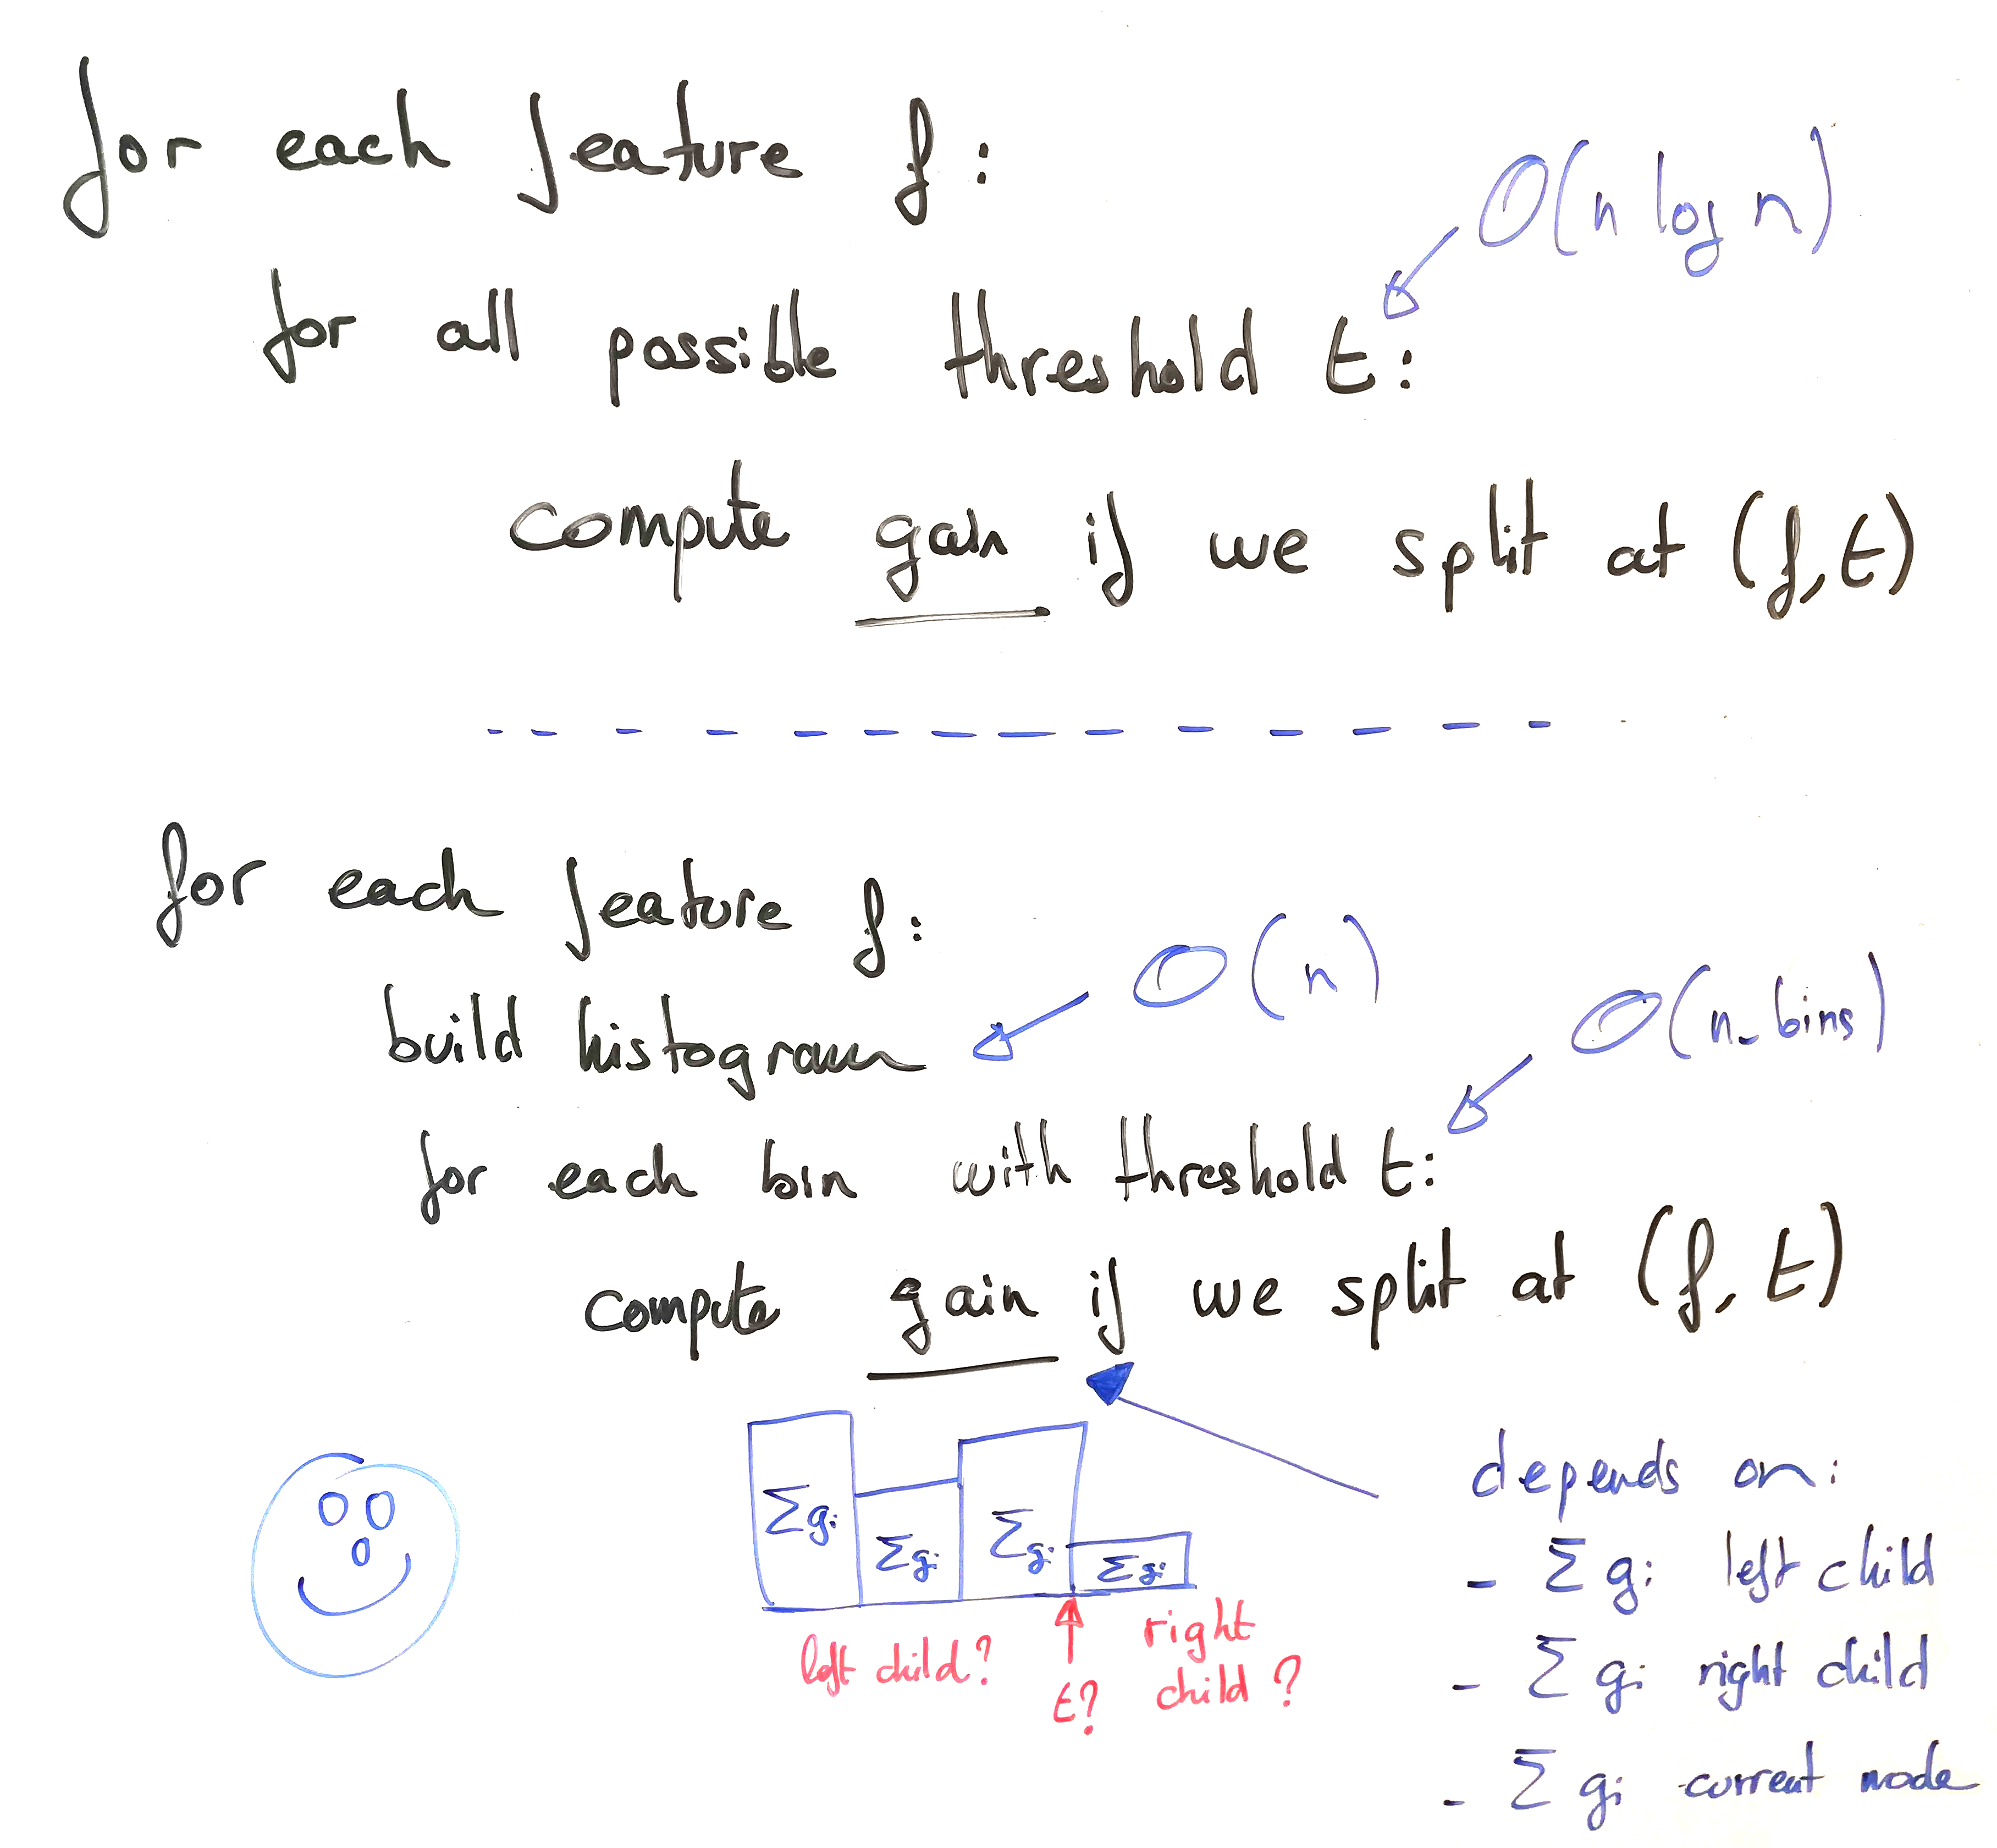 for each feature f:
O(n log n)
for all possible threshold t:
compute gain if we split at (f,t)
for each feature f:
O(n)
build histogram
O(n_bins)
for each bin with threshold t:
compute gain if we split at (f, t)
Σgi
Σgi
Σgi
Σgi
left child?
t?
right
child ?
depends on:
- Σ gi left child
- Σ gi right child
- Σ gi current node